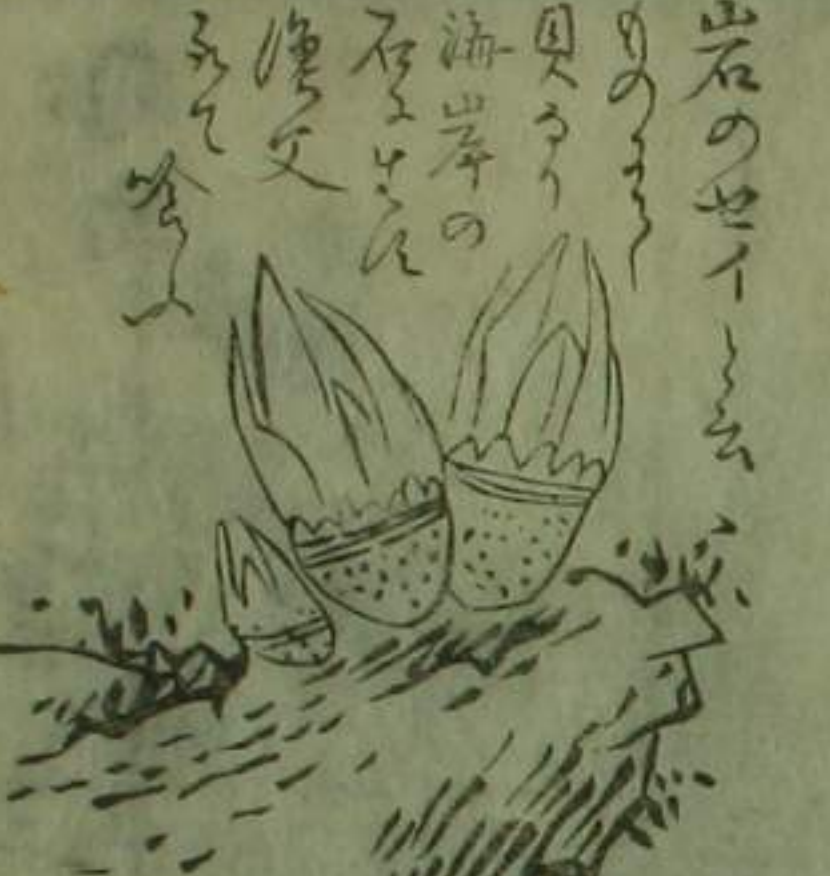 岩のセイと云
もの
貝なり
海岸の
石に生ズ
漁父
取て
喰ふ